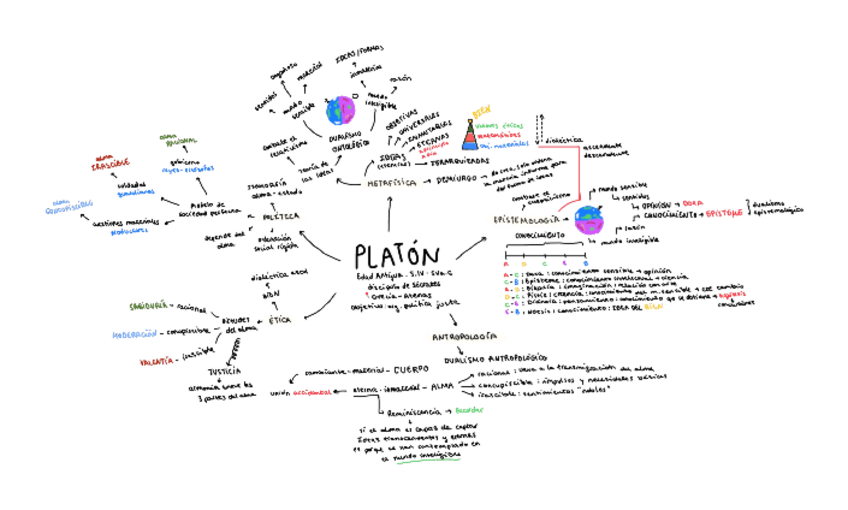 PLATÓN
Edad Antigua - S.IV - SV a.C
discípulo de Sócrates
Grecia - Atenas
objetivo: org. política justa
METAFÍSICA
Teoría de
las ideas
combate el
relativismo
DUALISMO
ONTOLÓGICO
mundo
sensible
sentidos
engañoso
material
mundo
inteligible
IDEAS/FORMAS
inmaterial
razón
IDEAS
(esencias)
OBJETIVAS
UNIVERSALES
INMUTABLES
ETERNAS
JERARQUIZADAS
BIEN
valores éticos
matemáticas
dialéctica
ascendente
descendente
DEMIURGO
no crea, solo ordena
la materia informe para
dar forma de ideas
EPISTEMOLOGÍA
combate el
mundo sensible
sentidos
OPINIÓN → DOXA
CONOCIMIENTO → EPISTEME
razón
mundo inteligible
dualismo
epistemológico
CONOCIMIENTO
A D C E B
A - C : Doxa : conocimiento sensible → opinión
C - B : Episteme : conocimiento intelectual → ciencia
E - B : Noesis : conocimiento : IDEA DEL BIEN
ANTROPOLOGÍA
DUALISMO ANTROPOLÓGICO
cambiante - material - CUERPO
eterna - inmaterial - ALMA
unión accidental
racional : lleva a la transmigración del alma
concupiscible : impulsos y necesidades básicas
irascible : sentimientos "nobles"
Reminiscencia → Recordar
si el alma es capaz de captar
ideas transcendentes y eternas
es porque se han contemplado en
el mundo inteligible
ÉTICA
BIEN
virtudes
del alma
SABIDURÍA - racional
MODERACIÓN - concupiscible
VALENTÍA - irascible
JUSTICIA
armonía entre las
3 partes del alma
POLÍTICA
isomorfía
alma - estado
depende del
alma
educación
social rígida
Modelo de
sociedad perfecta
gobierno
reyes-filósofos
alma
RACIONAL
soldados
guardianes
alma
IRASCIBLE
gestiones materiales
productores
alma
CONCUPISCIBLE